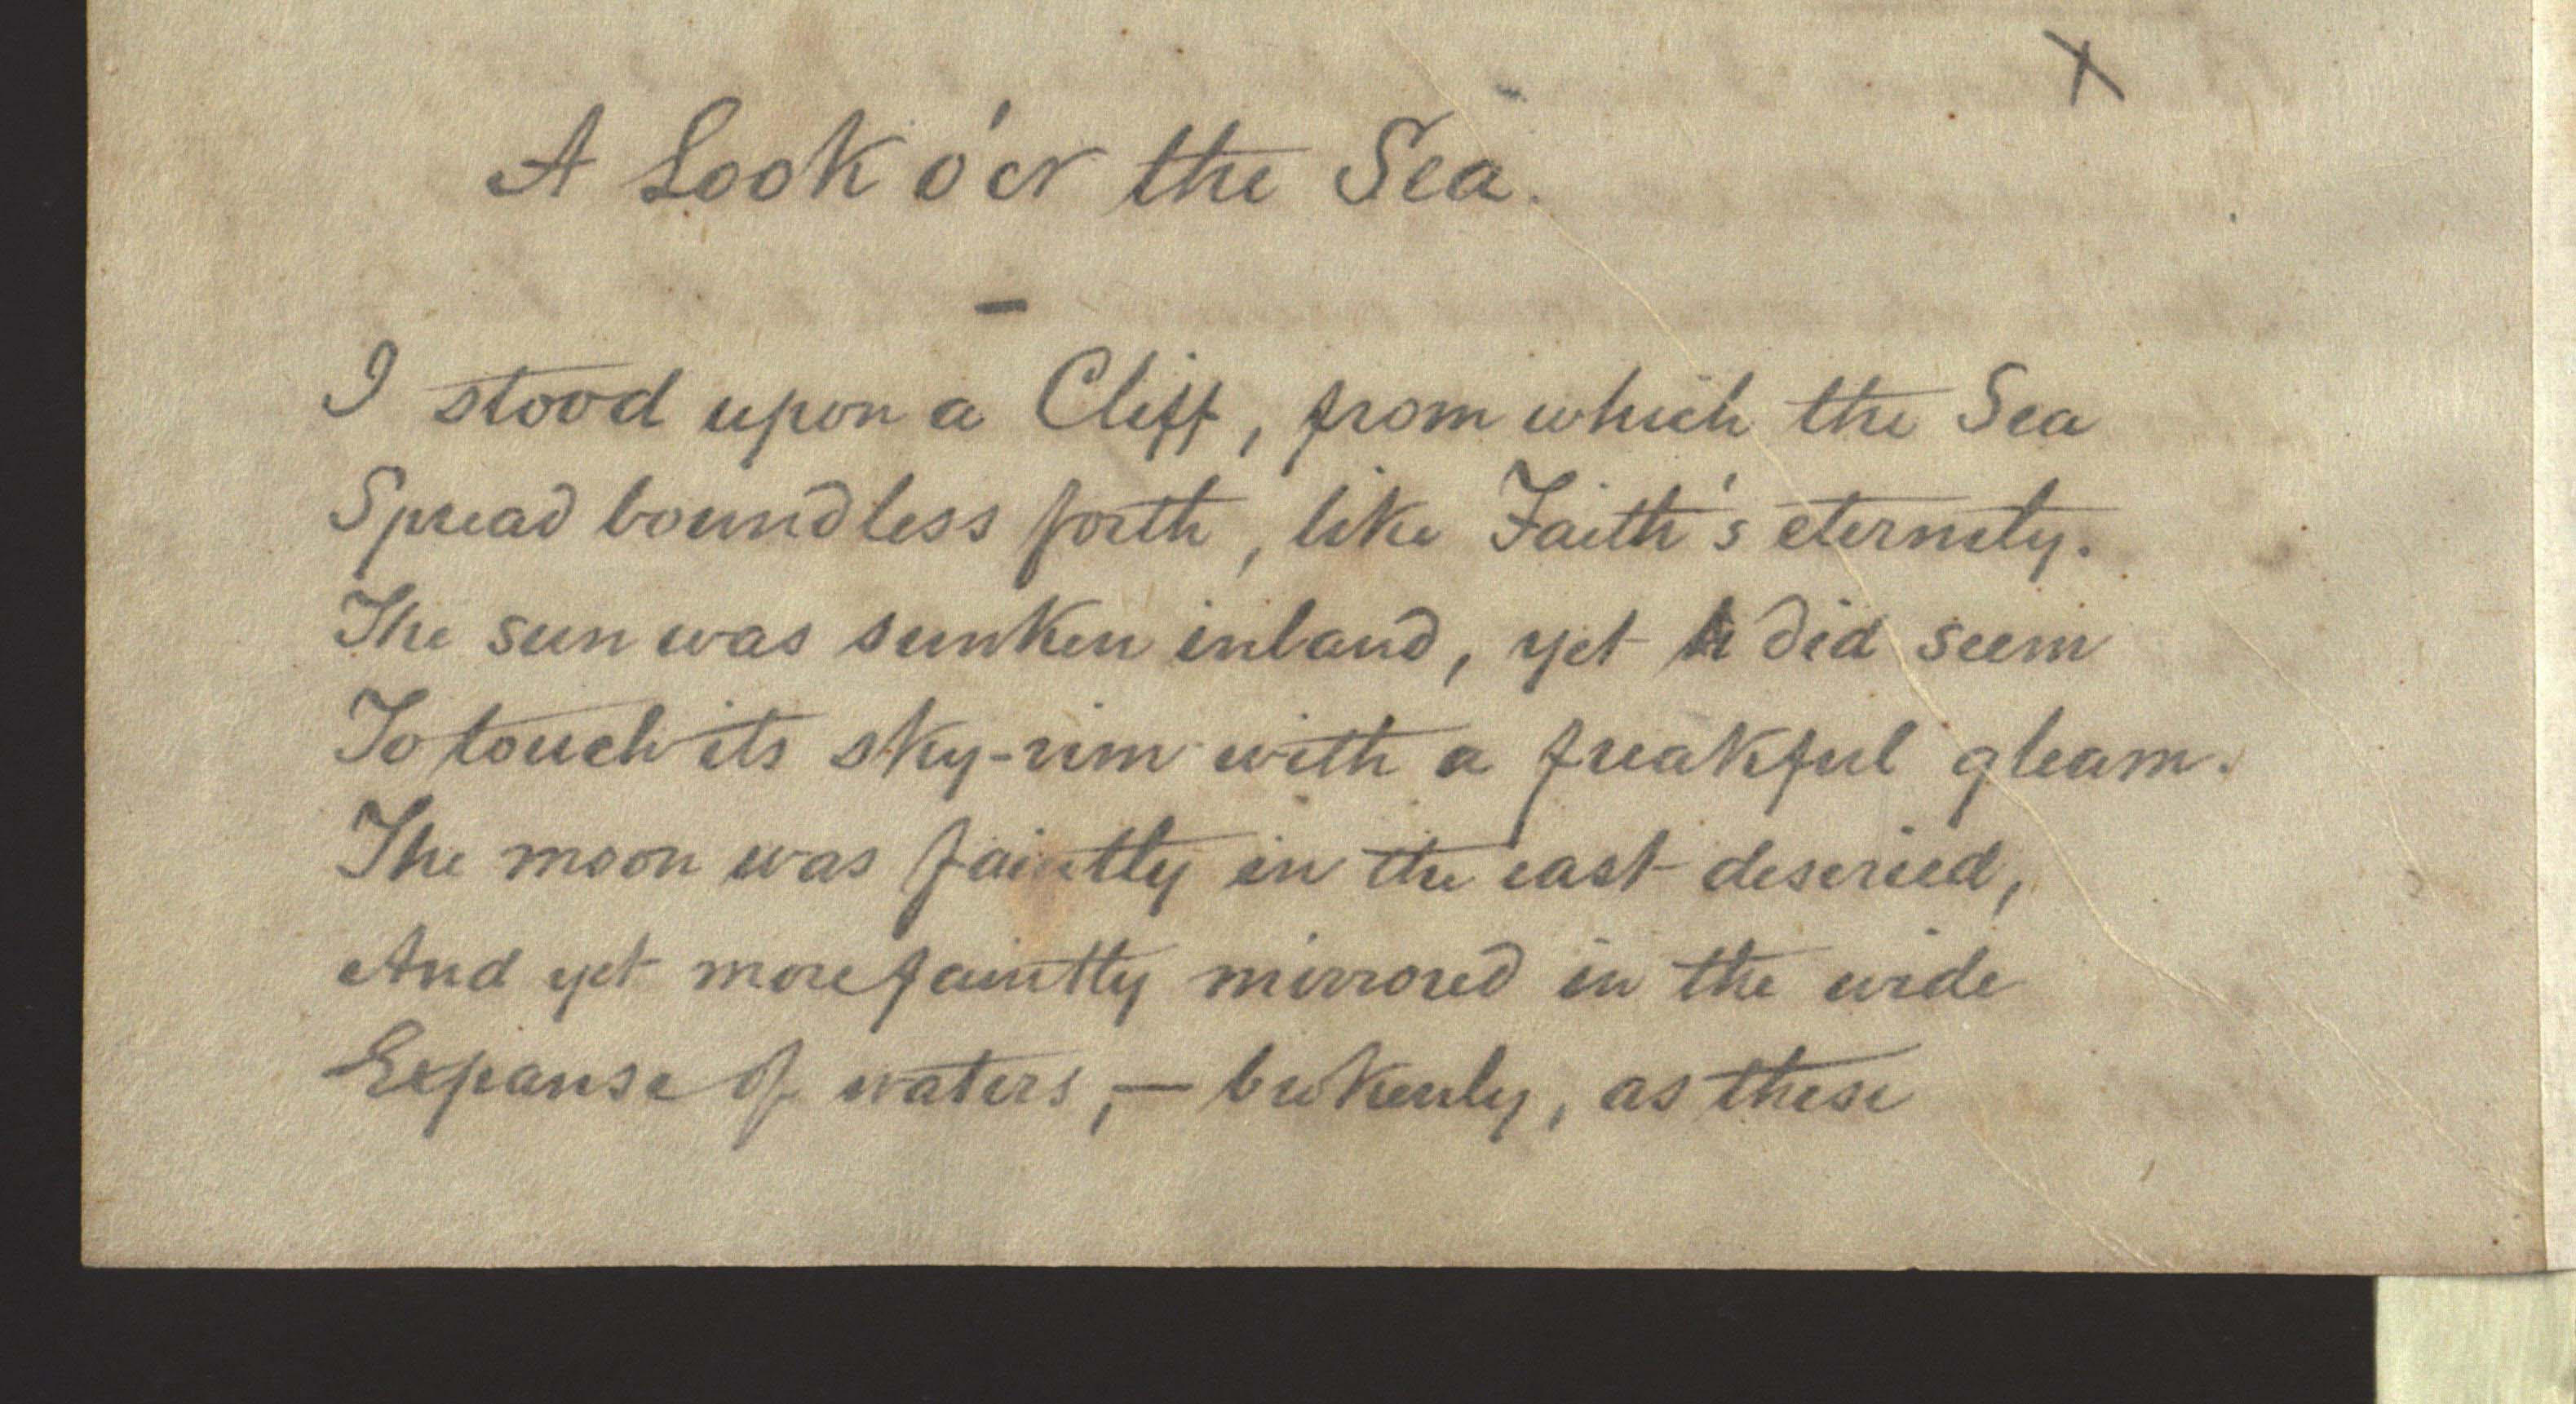 X
A Look o'er the Sea.
–
I stood upon a Cliff, from which the Sea
Spread boundless forth, like Faith's eternity.
The sun was sunken inland, yet did seem
To touch its sky-rim with a freakful gleam.
The moon was faintly in the east descried,
And yet more faintly mirrored in the wide
Expanse of waters,— brokenly, as these